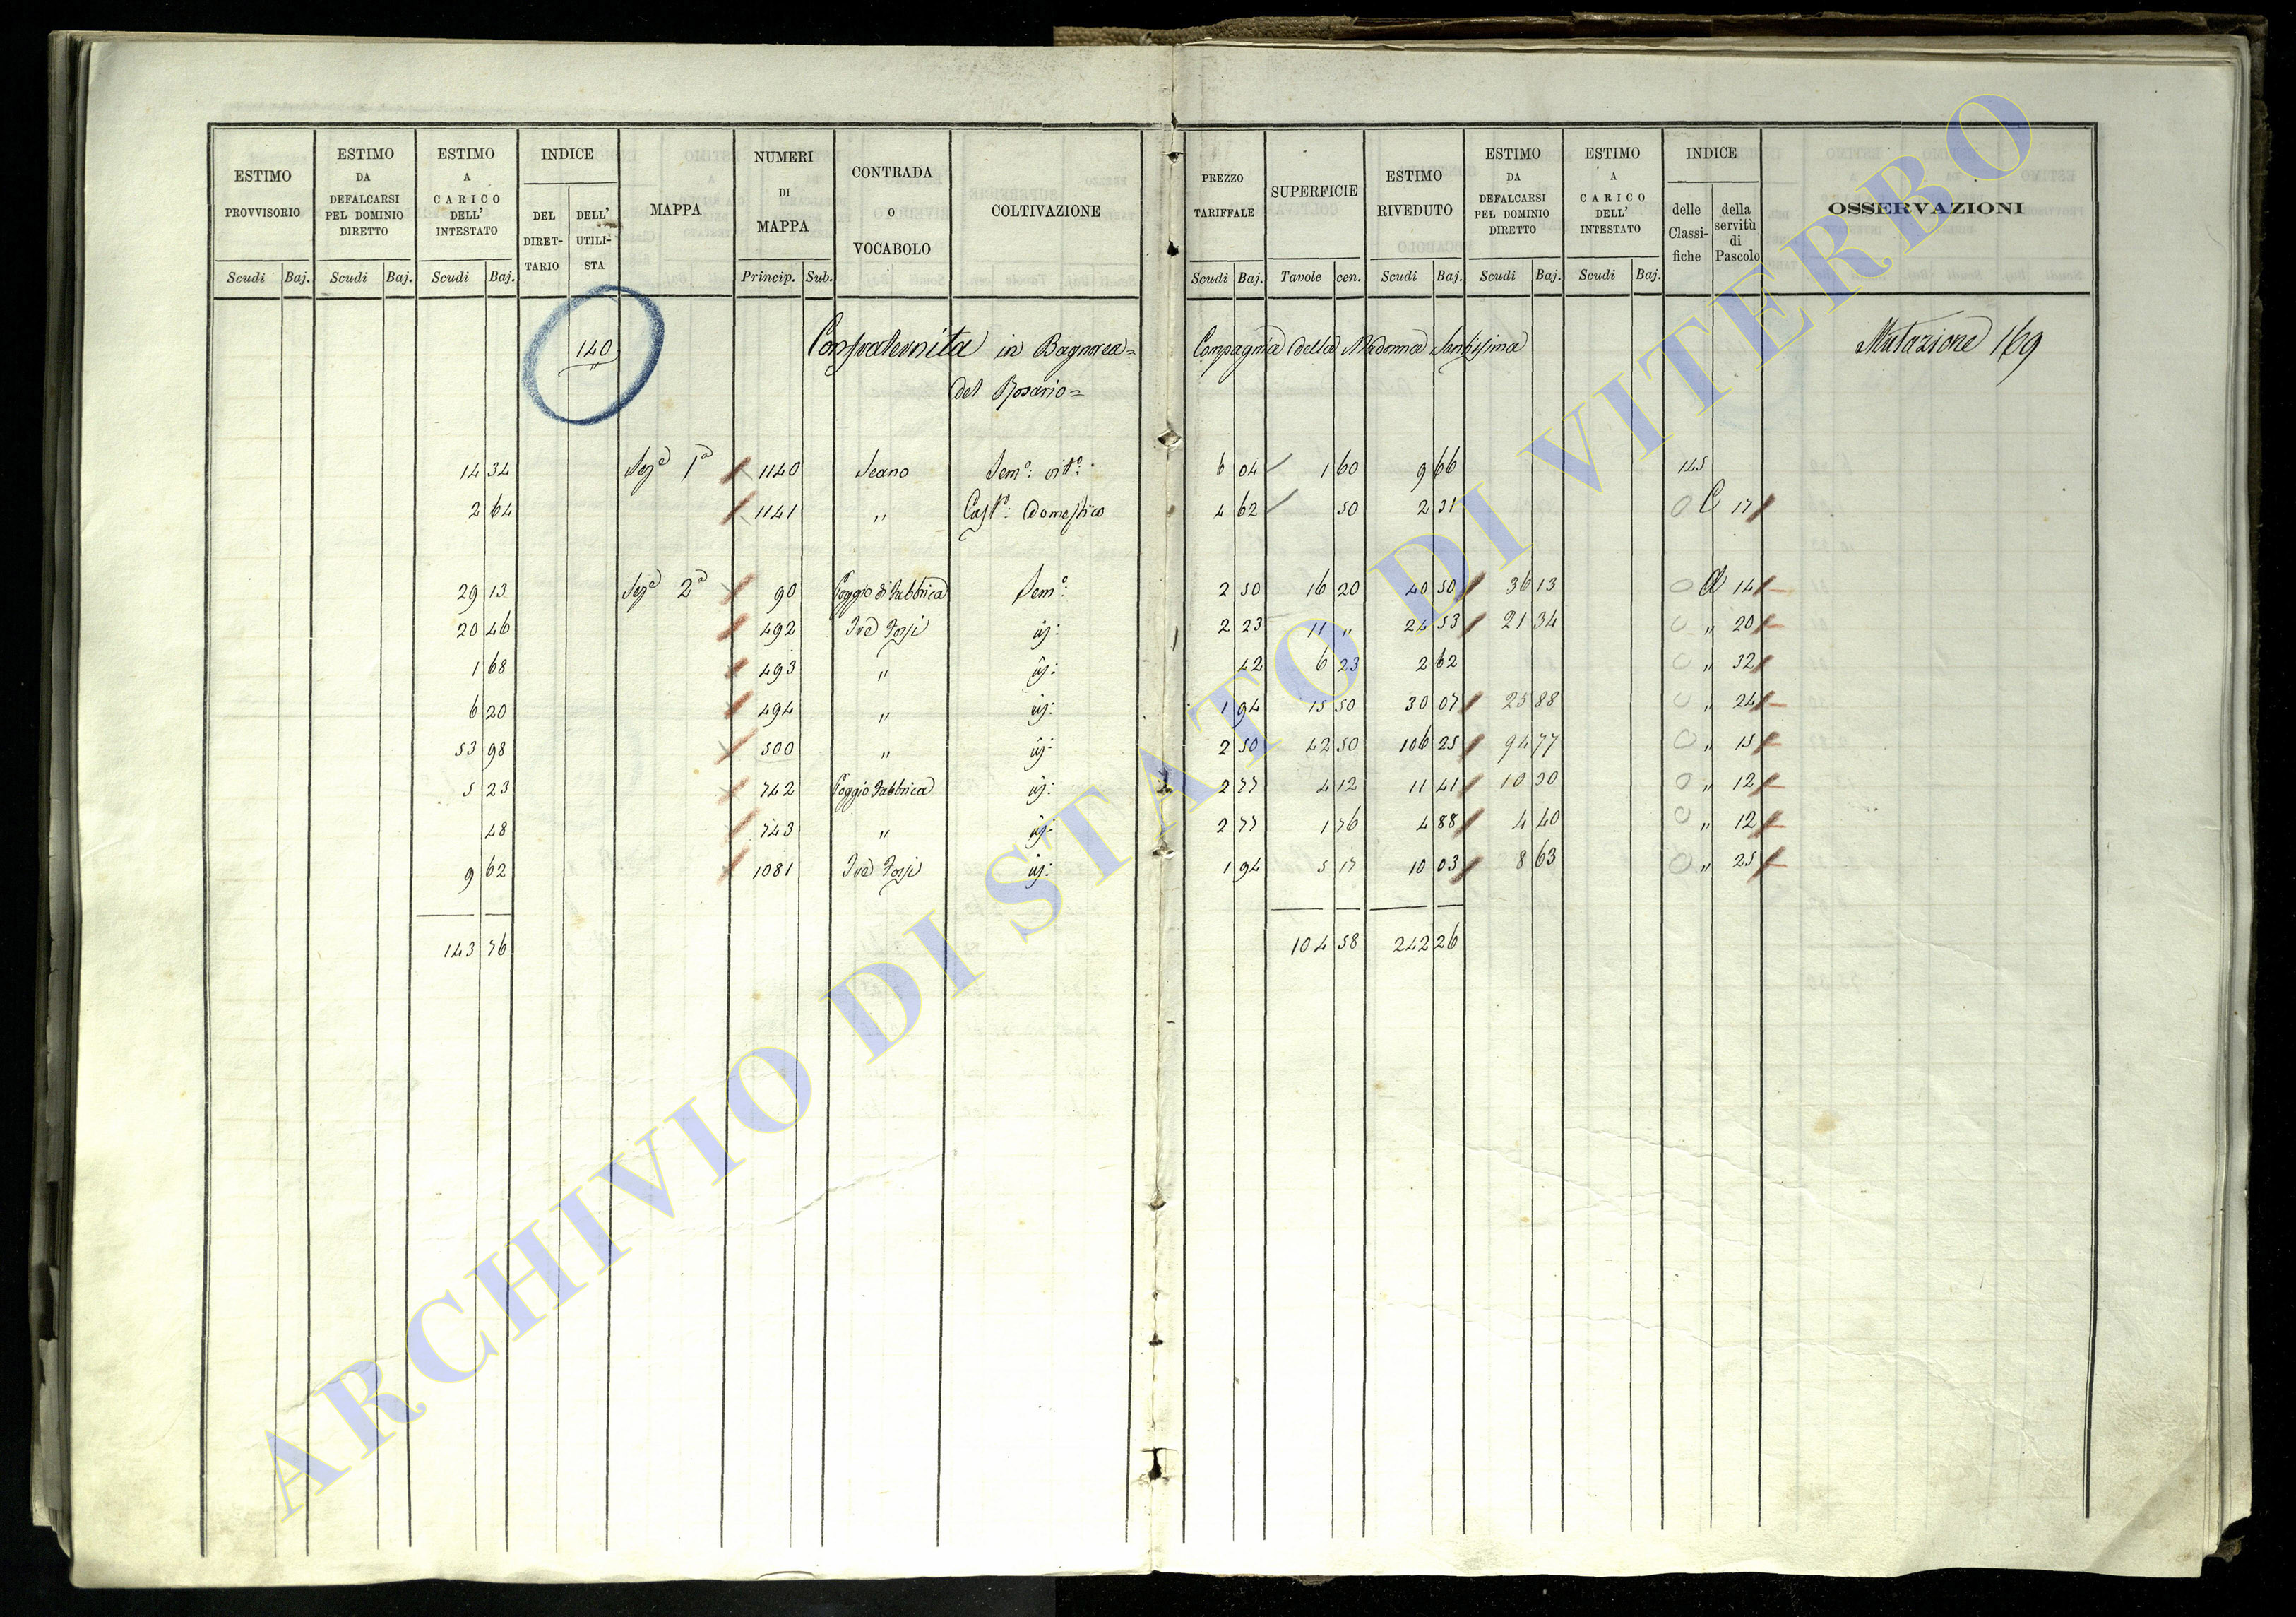 ESTIMO PROVVISORIO Scudi Baj. | ESTIMO DA DEFALCARSI PEL DOMINIO DIRETTO Scudi Baj. | ESTIMO A CARICO DELL' INTESTATO Scudi Baj. | INDICE DEL DIRET-TARIO | DELL' UTILI-STA | MAPPA | NUMERI DI MAPPA Princip. Sub. | CONTRADA O VOCABOLO | COLTIVAZIONE | PREZZO TARIFFALE Scudi Baj. | SUPERFICIE Tavole cen. | ESTIMO RIVEDUTO Scudi Baj. | ESTIMO DA DEFALCARSI PEL DOMINIO DIRETTO Scudi Baj. | ESTIMO A CARICO DELL' INTESTATO Scudi Baj. | INDICE delle Classi-fiche | della servitù di Pascolo | OSSERVAZIONI
140 Confraternita in Bagnorea= Compagnia della Madonna Santissima Mutazione 169
del Rosario=
14 34 Sezᵃ 1ᵃ 1140 Seano Semᵒ: vitᵒ: 6 04 1 60 9 66 145
2 64 1141 " Castᵒ: Domestico 4 62 50 2 31 C 17
29 13 Sezᵃ 2ᵃ 90 Poggio di Fabbrica Semᵒ: 2 50 16 20 40 50 36 13 14
20 46 492 2 23 11 " 24 53 21 34 " 20
1 68 493 " 42 6 23 2 62 " 32
6 20 494 " 1 94 15 50 30 07 25 88 " 24
53 98 500 " 2 50 42 50 106 25 94 77 " 15
5 23 742 Poggio Fabbrica 2 77 4 12 11 41 10 30 " 12
48 743 " 2 77 1 76 4 88 4 40 " 12
9 62 1081 1 94 5 17 10 03 8 63 " 25
143 76 104 58 242 26
ARCHIVIO DI STATO DI VITERBO